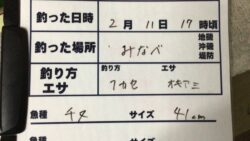 釣った日時 2月11日17時頃
釣った場所 みなべ 地磯 沖磯 堤防
釣り方 エサ 釣り方 フカセ エサ オキアミ
魚種 チヌ サイズ 41cm
魚種 サイズ